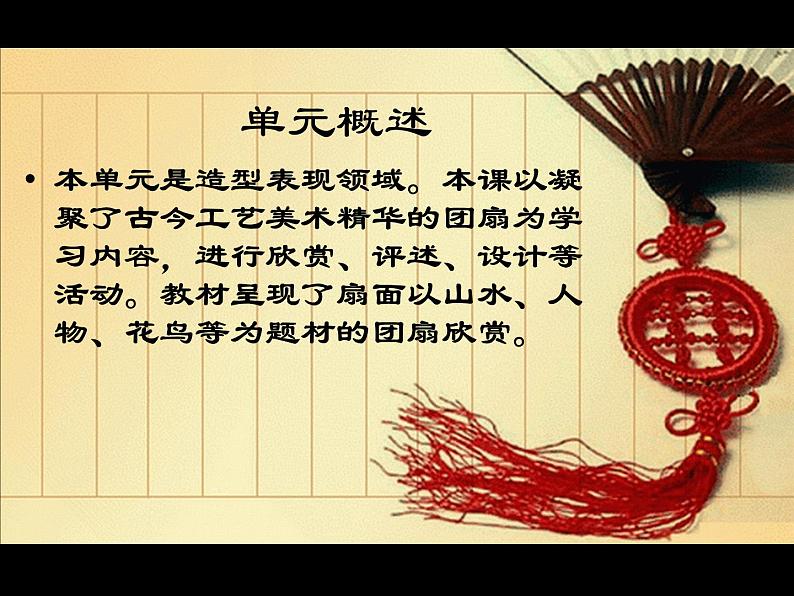 单元概述
• 本单元是造型表现领域。本课以凝
聚了古今工艺美术精华的团扇为学
习内容，进行欣赏、评述、设计等
活动。教材呈现了扇面以山水、人
物、花鸟等为题材的团扇欣赏。